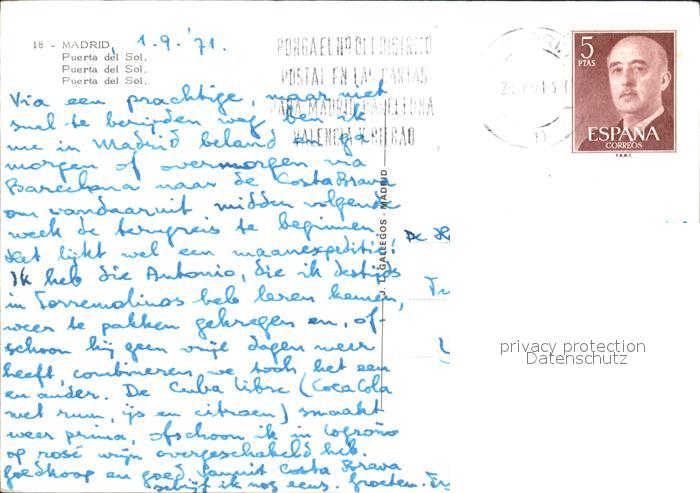 18 - MADRID, 1.9.'71.
Puerta del Sol.
Puerta del Sol.
Puerta del Sol.
PONGA EL Nº DEL DISTRITO
POSTAL EN LAS CARTAS
PARA MADRID BARCELONA
VALENCIA BILBAO
5
PTAS
ESPAÑA
CORREOS
F.N.M.T.
Via een prachtige, maar niet
snel te berijden weg ben ik
nu in Madrid beland en ga
morgen of overmorgen via
Barcelona naar de Costa Brava
om vandaaruit midden volgende
week de terugreis te beginnen.
Het lijkt wel een maanexpeditie!
Ik heb die Antonio, die ik destijds
in Torremolinos heb leren kennen,
weer te pakken gekregen en, of-
schoon hij geen vrije dagen meer
heeft, combineren we toch het een
en ander. De Cuba libre (CocaCola
met rum, ijs en citroen) smaakt
weer prima, ofschoon ik in Logroño
op rosé wijn overgeschakeld heb.
Goedkoop en goed. Vanuit Costa Brava
schrijf ik nog eens. Groeten.
J. L. GALLEGOS - MADRID
De
privacy protection
Datenschutz